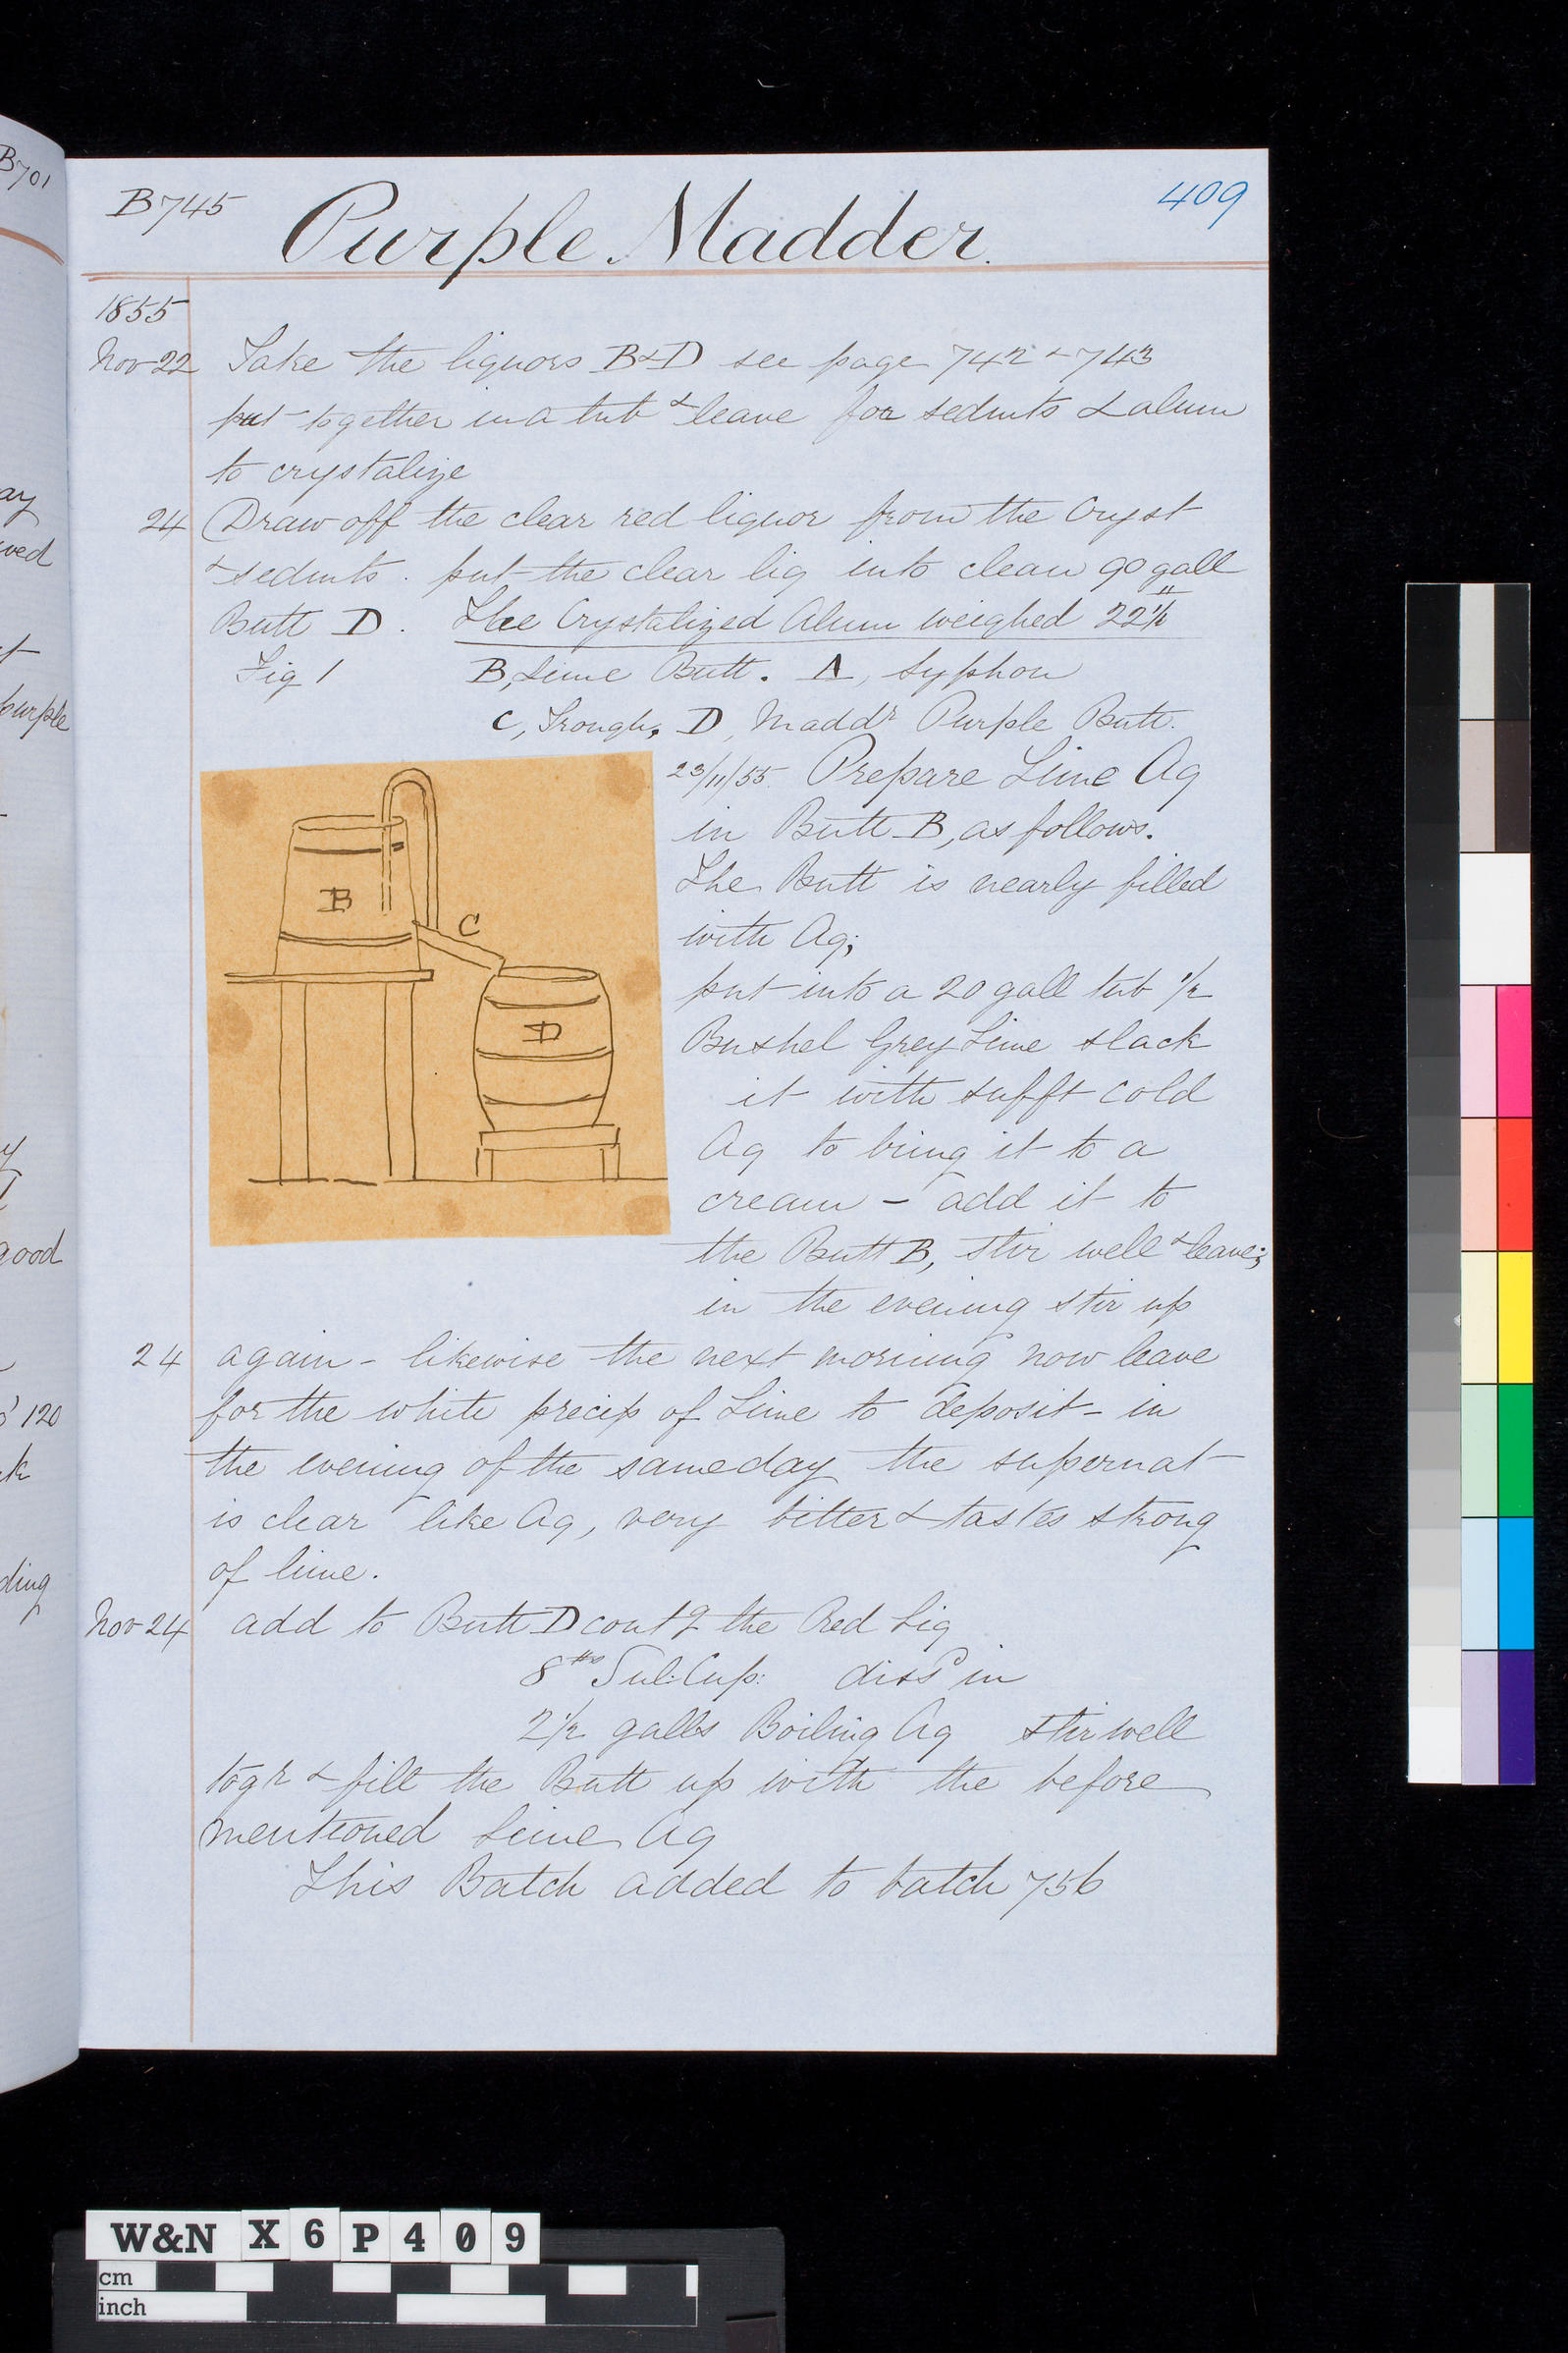 B701
B745
Purple Madder.
409
1855
Nov 22 Take the liquors B&D see page 742 & 743
put together in a tub & leave for sedmts & alum
to crystalize
24 Draw off the clear red liquor from the Cryst
& sedmts. put the clear liq into clean 90 gall
Butt D. The Crystalized Alum weighed 22
Fig 1 B, Lime Butt. A, Syphon
C, Trough, D, Maddr Purple Butt.
23/11/55. Prepare Lime Aq
in Butt B, as follows.
The Butt is nearly filled
with Aq;
put into a 20 gall tub 1/2
Bushel Grey Lime slack
it with sufft cold
Aq to bring it to a
cream - add it to
the Butt B, stir well & leave;
in the evening stir up
B
C
D
24 again - likewise the next morning now leave
for the white precip of Lime to deposit - in
the evening of the same day the supernat
is clear like Aq, very bitter & tastes strong
of lime.
Nov 24 add to Butt D contg the Red Liq
8 lbs Sul: Cup: dissd in
2 1/2 galls Boiling Aq stir well
togr & fill the Butt up with the before
mentioned Lime Aq
This Batch added to batch 756
ay
ved
purple
good
120
k
ding
W&N X 6 P 4 0 9
cm
inch